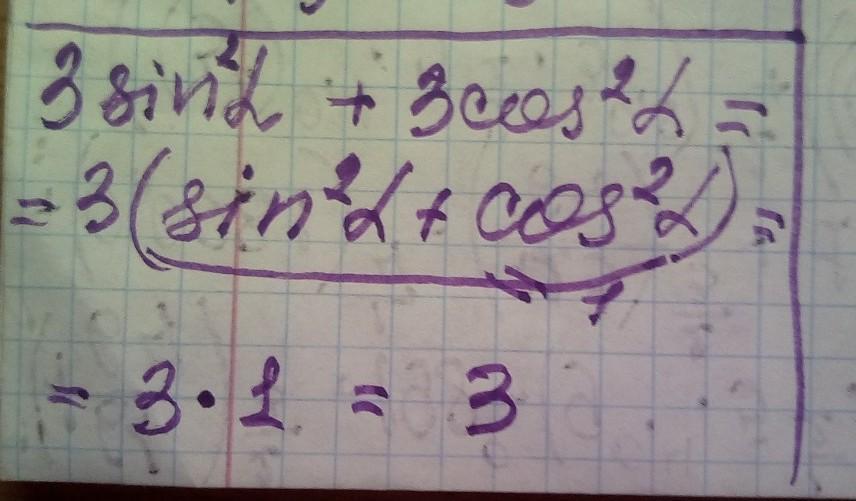 3 sin²α + 3 cos²α =
= 3 (sin²α + cos²α) =
= 1
= 3 · 1 = 3